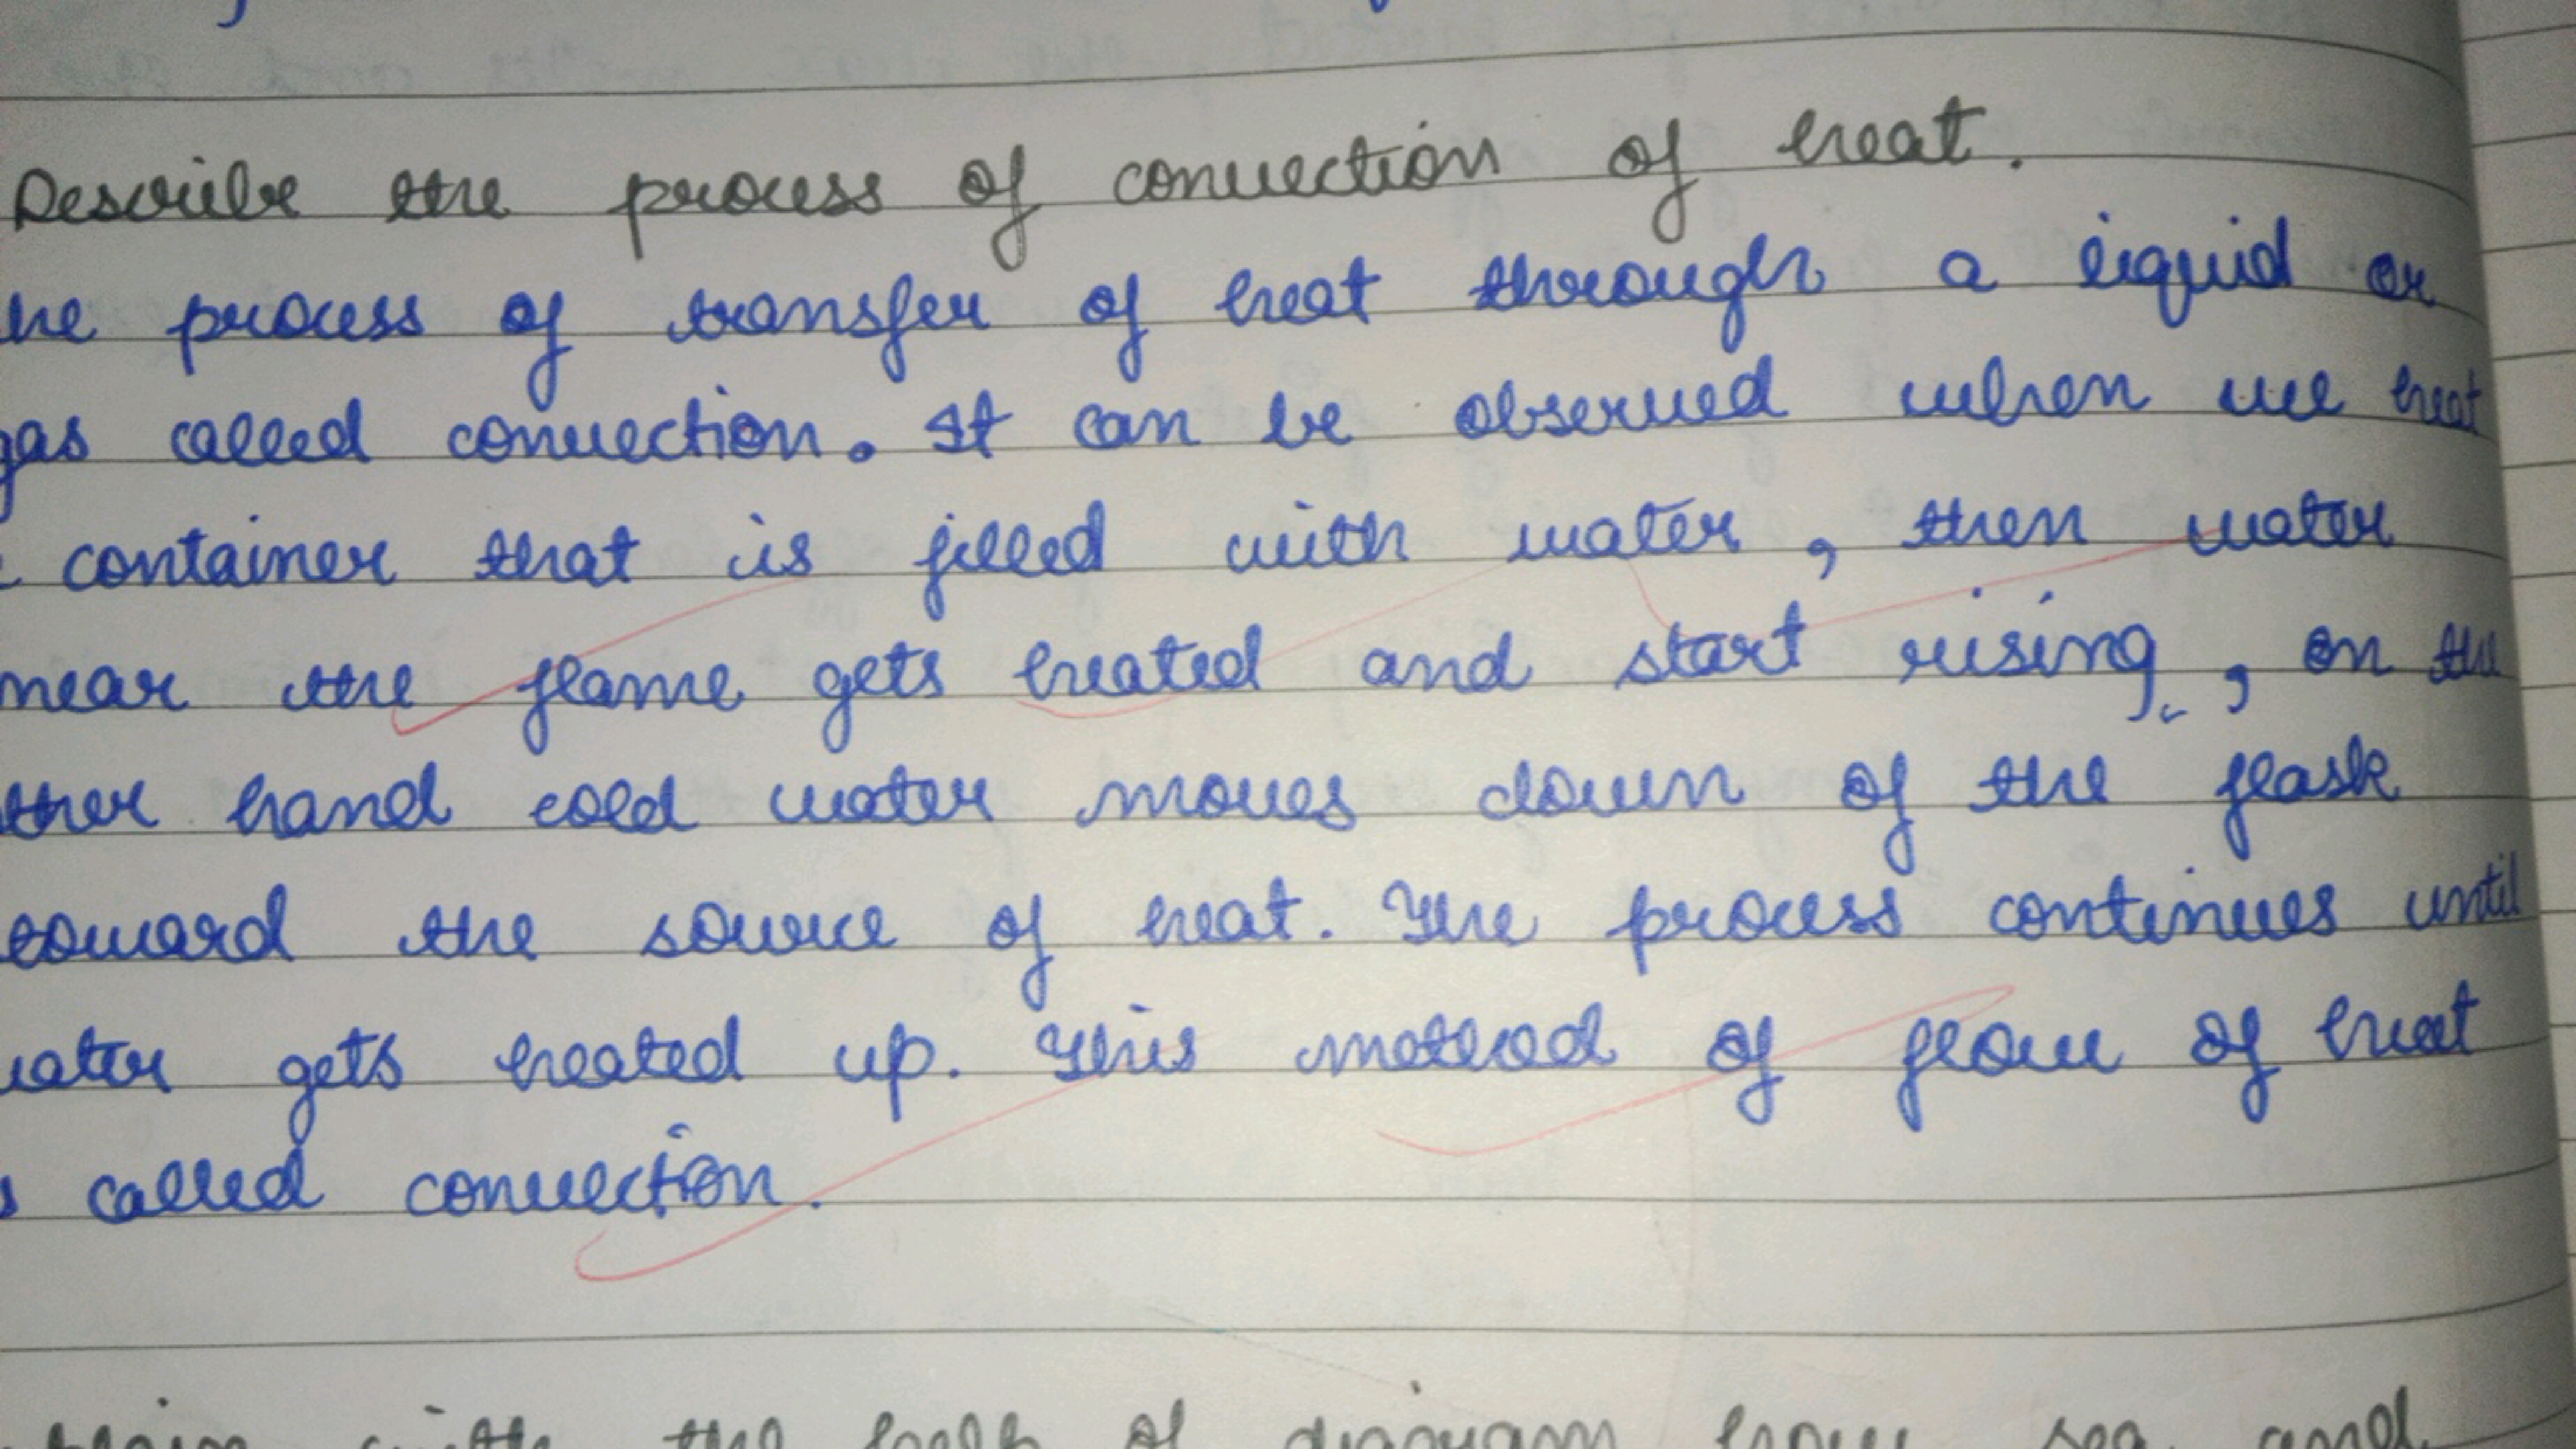 Describe the process of convection of heat.
he process of transfer of heat through a liquid or
gas called convection. It can be observed when we heat
container that is filled with water, then water
near the flame gets heated and start rising, on the
ther hand cold water moves down of the flask
toward the source of heat. The process continues until
water gets heated up. This method of flow of heat
s called convection.
with the help of diagram how sea and